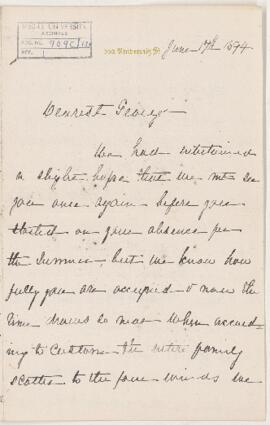 McGILL UNIVERSITY
ARCHIVES
ACC. NO. 909C/
REF.
University St
June 17th 1894
Dearest George
We had entertained
a slight hope that we mt see
you once again before you
started on your absence for
the summer - but we know how
fully you are occupied & now the
time draws so near when accord-
ing to custom - the entire family
scatter to the four winds we